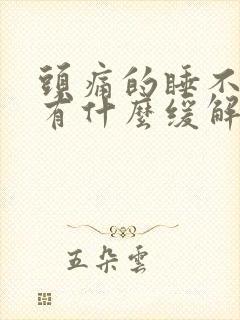 頭痛的睡不
有什麼緩解
五朵雲